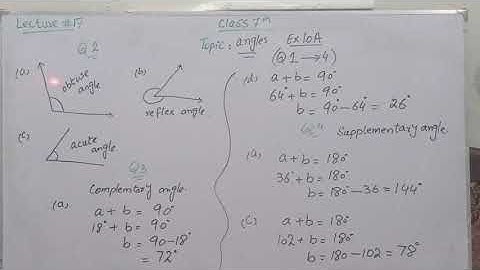 Lecture #17
Class 7th
Topic: angles Ex10A
(Q1→4)
Q2
(a)
obtuse
angle
(b)
reflex angle
(c)
acute
angle
Q3
Complentary angle.
(a)
a+b = 90°
18°+b = 90°
b = 90-18°
= 72°
(d) a+b = 90°
64°+b = 90°
b = 90°-64° = 26°
Q4
Supplementary angle.
(a) a+b = 180°
36°+b = 180°
b = 180°-36 = 144°
(C) a+b = 180°
102+b = 180°
b = 180-102 = 78°